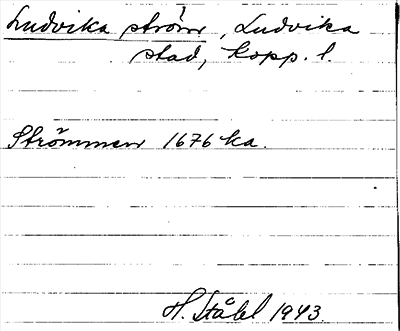 Ludvika ström, Ludvika
stad, Kopp. l.
Strömmen 1676 ka.
H. Ståhl 1943.